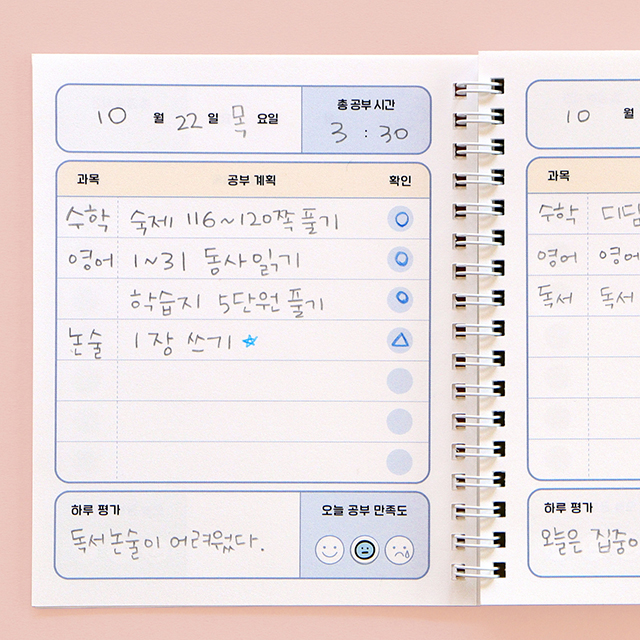 10 월 22 일 목 요일
총 공부 시간
3 : 30
과목 공부 계획 확인
수학 숙제 116~120쪽 풀기
영어 1~31 동사 읽기
학습지 5단원 풀기
논술 1장 쓰기
하루 평가
독서논술이 어려웠다.
오늘 공부 만족도
10 월
과목
수학 디딤
영어 영어
독서 독서
하루 평가
오늘은 집중이